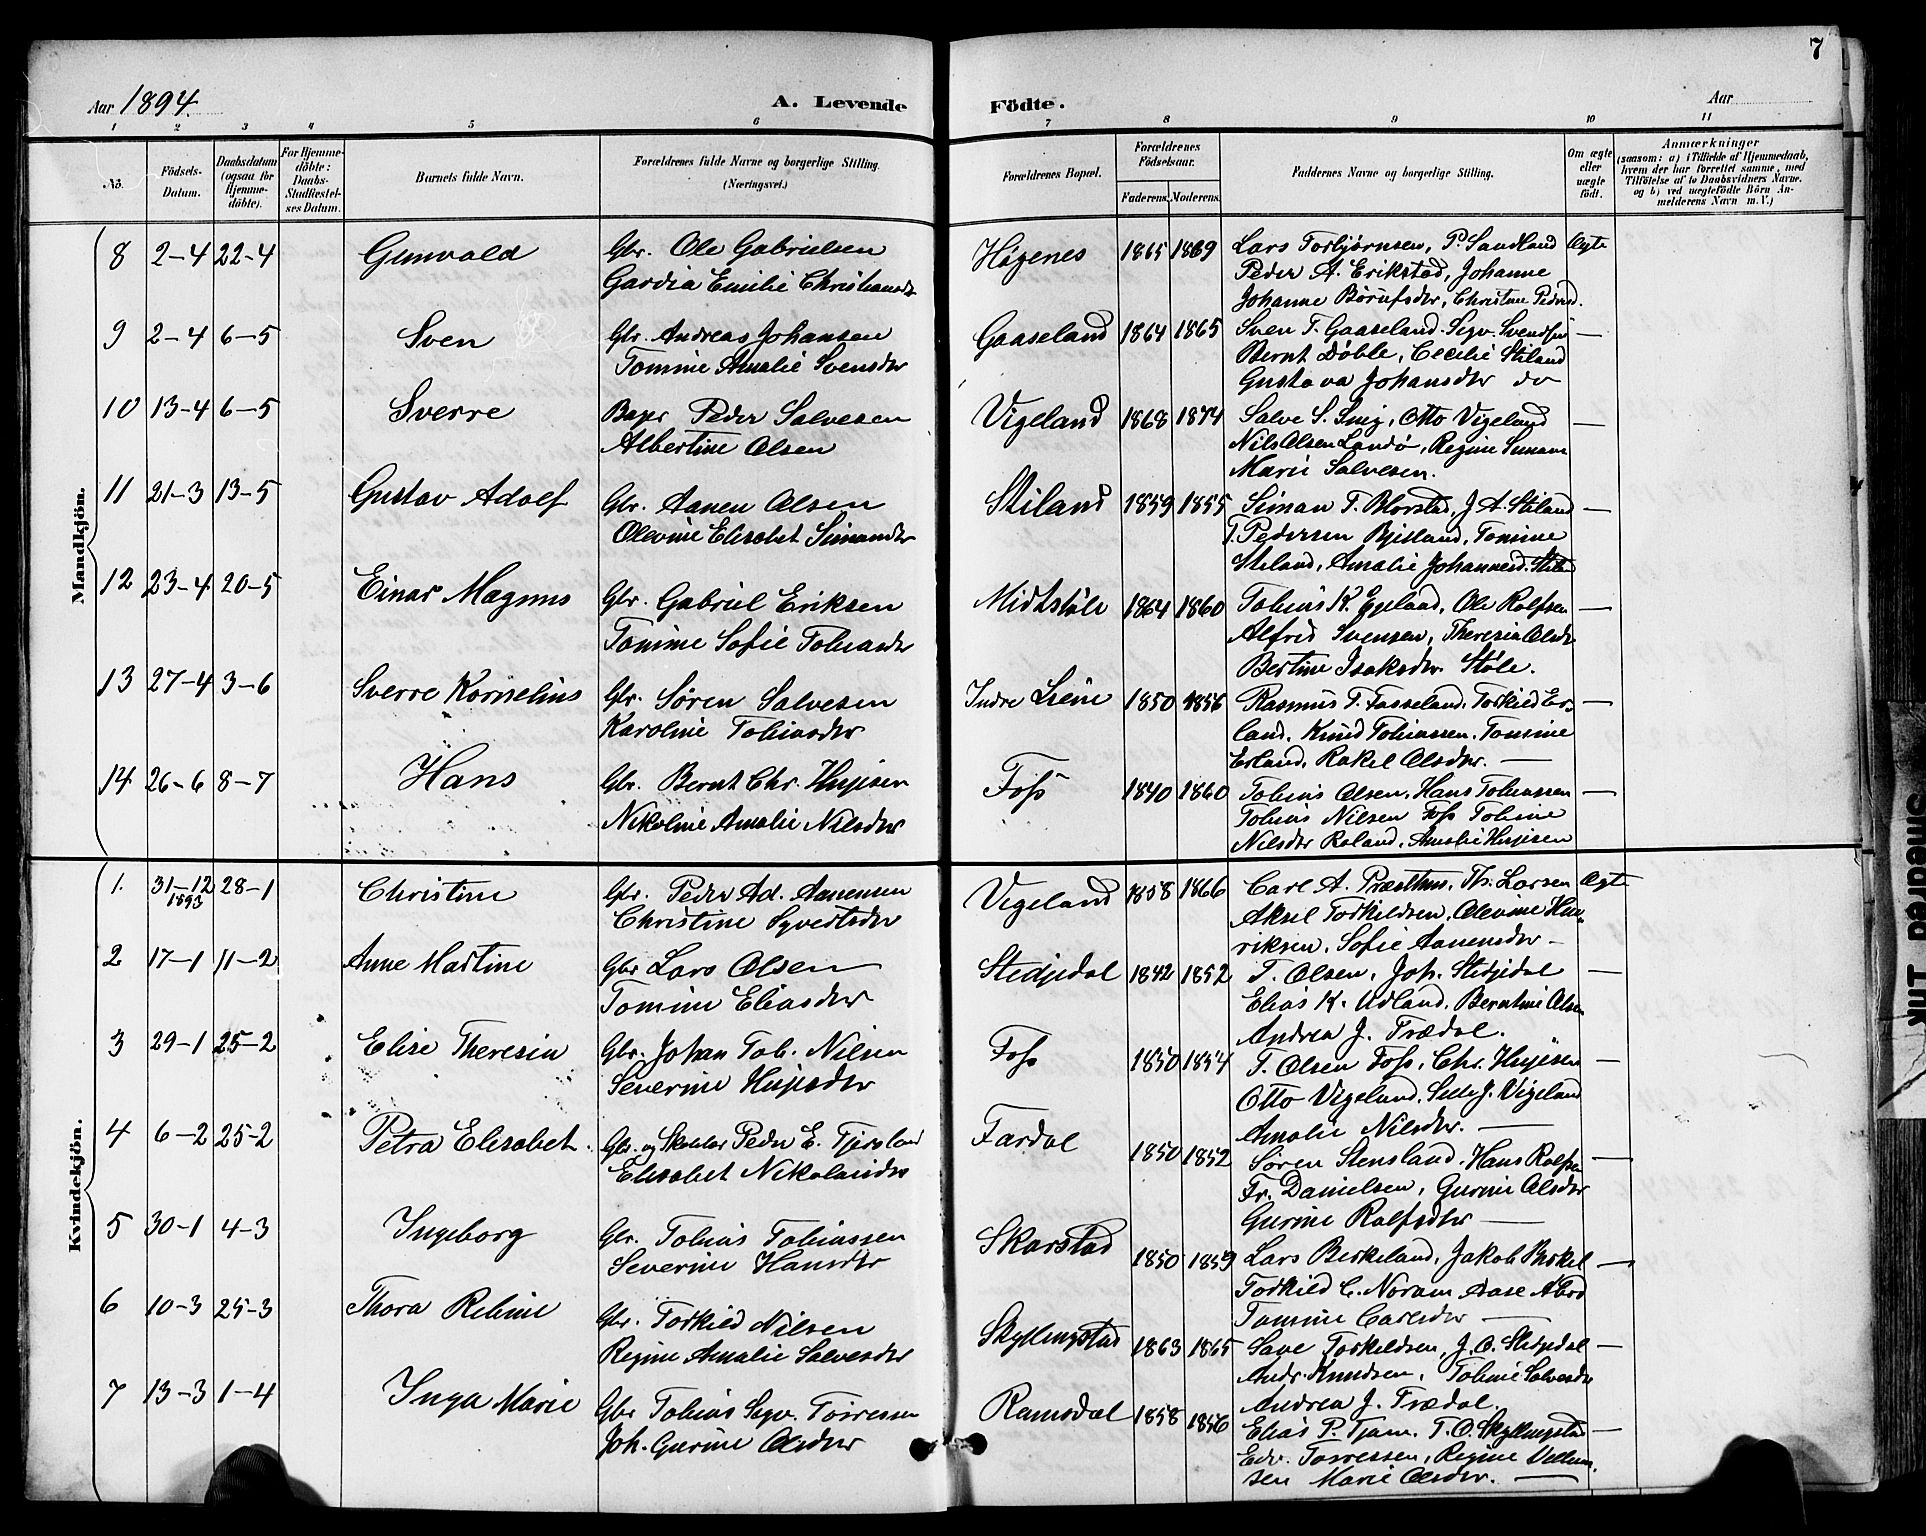 7
Aar 1894. A. Levende Födte. Aar
1 2 3 4 5 6 7 8 9 10 11
No. Födsels-Datum. Daabsdatum (ogsaa for Hjemmedöbte). For Hjemmedöbte: Daabs-Stadfæstelses Datum. Barnets fulde Navn. Forældrenes fulde Navne og borgerlige Stilling. (Næringsvei.) Forældrenes Bopæl. Forældrenes Födselsaar. Faderens. Moderens. Faddernes Navne og borgerlige Stilling. Om ægte eller uægte födt. Anmærkninger (saasom: a) i Tilfælde af Hjemmedaab, hvem der har forrettet samme, med Tilföielse af to Daabsvidners Navne. og b) ved uægtefödte Börn Anmelderens Navn m. V.)
Mandkjön.
8 2-4 22-4 Gunvald Gbr. Ole Gabrielsen Högenes 1865 1869 Lars Torbjørnsen, P. Sandland Ægte
Gardia Emilie Christiansdr Peder A. Erikstad, Johanne
Johanne Børufsdr, Christine Pedersd.
9 2-4 6-5 Sven Gbr. Andreas Johansen Gaaseland 1864 1865 Sven T. Gaaseland. Sigv. Svendsen —
Tomine Amalie Svensdr Bernt Døble, Cecilie Stiland
Gustava Johansdr do
10 13-4 6-5 Sverre Peder Salvesen Vigeland 1868 1874 Salve S. Snig, Otto Vigeland —
Albertine Olsen Nils Olsen Landø, Regine
Marie Salvesen.
11 21-3 13-5 Gustav Adolf Gbr. Aanen Olsen Stiland 1859 1855 Siman T. Blorstad, J. A. Stiland —
Olevine Elisabet Simonsdr T. Pedersen Bjelland, Tomine
Stiland, Amalie Johannesd.
12 23-4 20-5 Einar Magnus Gbr. Gabriel Eriksen Midtstöle 1864 1860 Tobias K. Egeland, Ole Rolfsen —
Tomine Sofie Tobiasdr Alfred Svensen, Theresia Olsdr
Bertine Isaksdr Støle.
13 27-4 3-6 Sverre Kornelius Gbr. Søren Salvesen Indre Liene 1850 1856 Rasmus T. Fasseland. Torkild Er- —
Karoline Tobiasdr land. Knud Tobiassen. Tomine
Erland, Rakel Olsdr. —
14 26-6 8-7 Hans Gbr. Bernt Chr. Hujesen Foss 1840 1860 Tobias Olsen. Hans Tobiassen —
Nikoline Amalie Nilsdr Tobias Nilsen Foss Tobine
Nilsdr Roland. Amalie Hujesen
Kvindekjön.
1. 31-12 1893 28-1 Christine Gbr. Peder Ad. Aanensen Vegeland 1858 1866 Carl A. Præsthus, Th. Larsen Ægte
Christine Syvertsdr Aksel Torkildsen, Olevine Hen-
riksen. Sofie Aanensdr —
2 17-1 11-2 Anne Martine Gbr Lars Olsen Stedjedal 1842 1852 T. Olsen, Joh. Stedjedal —
Tomine Eliasdr Elias K. Udland. Berntine Olsen
Andrea J. Trædal.
3 29-1 25-2 Elise Theresia Gbr. Johan Tob. Nilsen Foss 1850 1854 T. Olsen Foss, Chr. Hujesen —
Severine Hujesdr Otto Vigeland. J. Vigeland
Amalie Nilsdr. —
4 6-2 25-2 Petra Elisabet Gbr. og Peder E. Tjersland Fardal 1850 1852 Søren Stensland. Hans Rolfsen —
Elisabet Nikolaisdr Fr. Danielsen, Gurine Olsdr
Gurine Rolfsdr —
5 30-1 4-3 Ingeborg Gbr. Tobias Tobiassen Skarstad 1850 1859 Lars Birkeland, Jakob Birkel —
Severine Hansdr Torkild C. Norum Aase
Tomine Carlsdr —
6 10-3 25-3 Thora Rebine Gbr. Torkild Nilsen Skyllingstad 1863 1865 Torkildsen, J. O. Stedjedal —
Regine Amalie Salvesdr Andr. Knudsen, Tobine Salvesdr
Andrea J. Trædal.
7 13-3 1-4 Inga Marie Gbr Tobias Sigv. Torressen Ramsdal 1858 1856 Elias P. Tjam. T. O. Skyllingstad —
Joh. Gurine Olsdr Edv. Torressen, Regine
sen Marie Olsdr. —